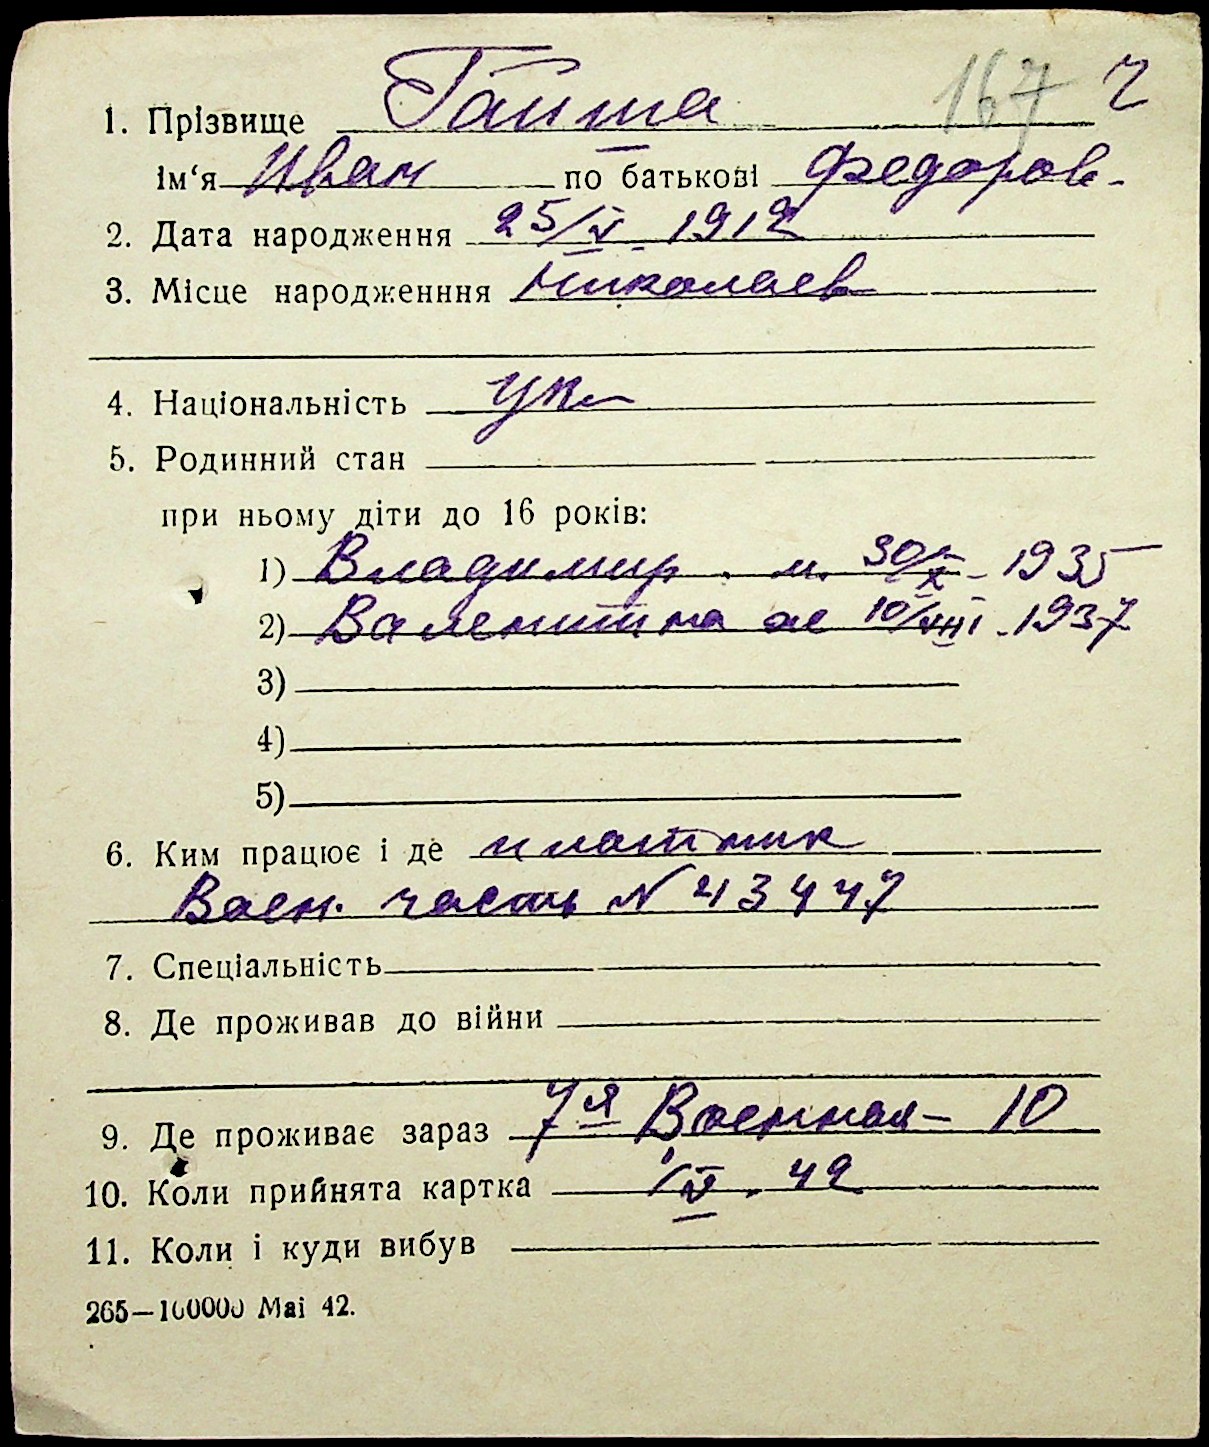 167 ч
1. Прізвище Гайша
ім‘я Иван по батькові Федоров-
2. Дата народження 25/V 1912
3. Місце народженння Николаев
4. Національність укр
5. Родинний стан
при ньому діти до 16 років:
1) Владимир. м. 30/X - 1935
2) Валентина ж 10/VIII - 1937
3)
4)
5)
6. Ким працює і де плотник
Воен. часть № 43447
7. Спеціальність
8. Де проживав до війни
9. Де проживає зараз 7я Военная - 10
10. Коли прийнята картка
11. Коли і куди вибув
265—100000 Маі 42.